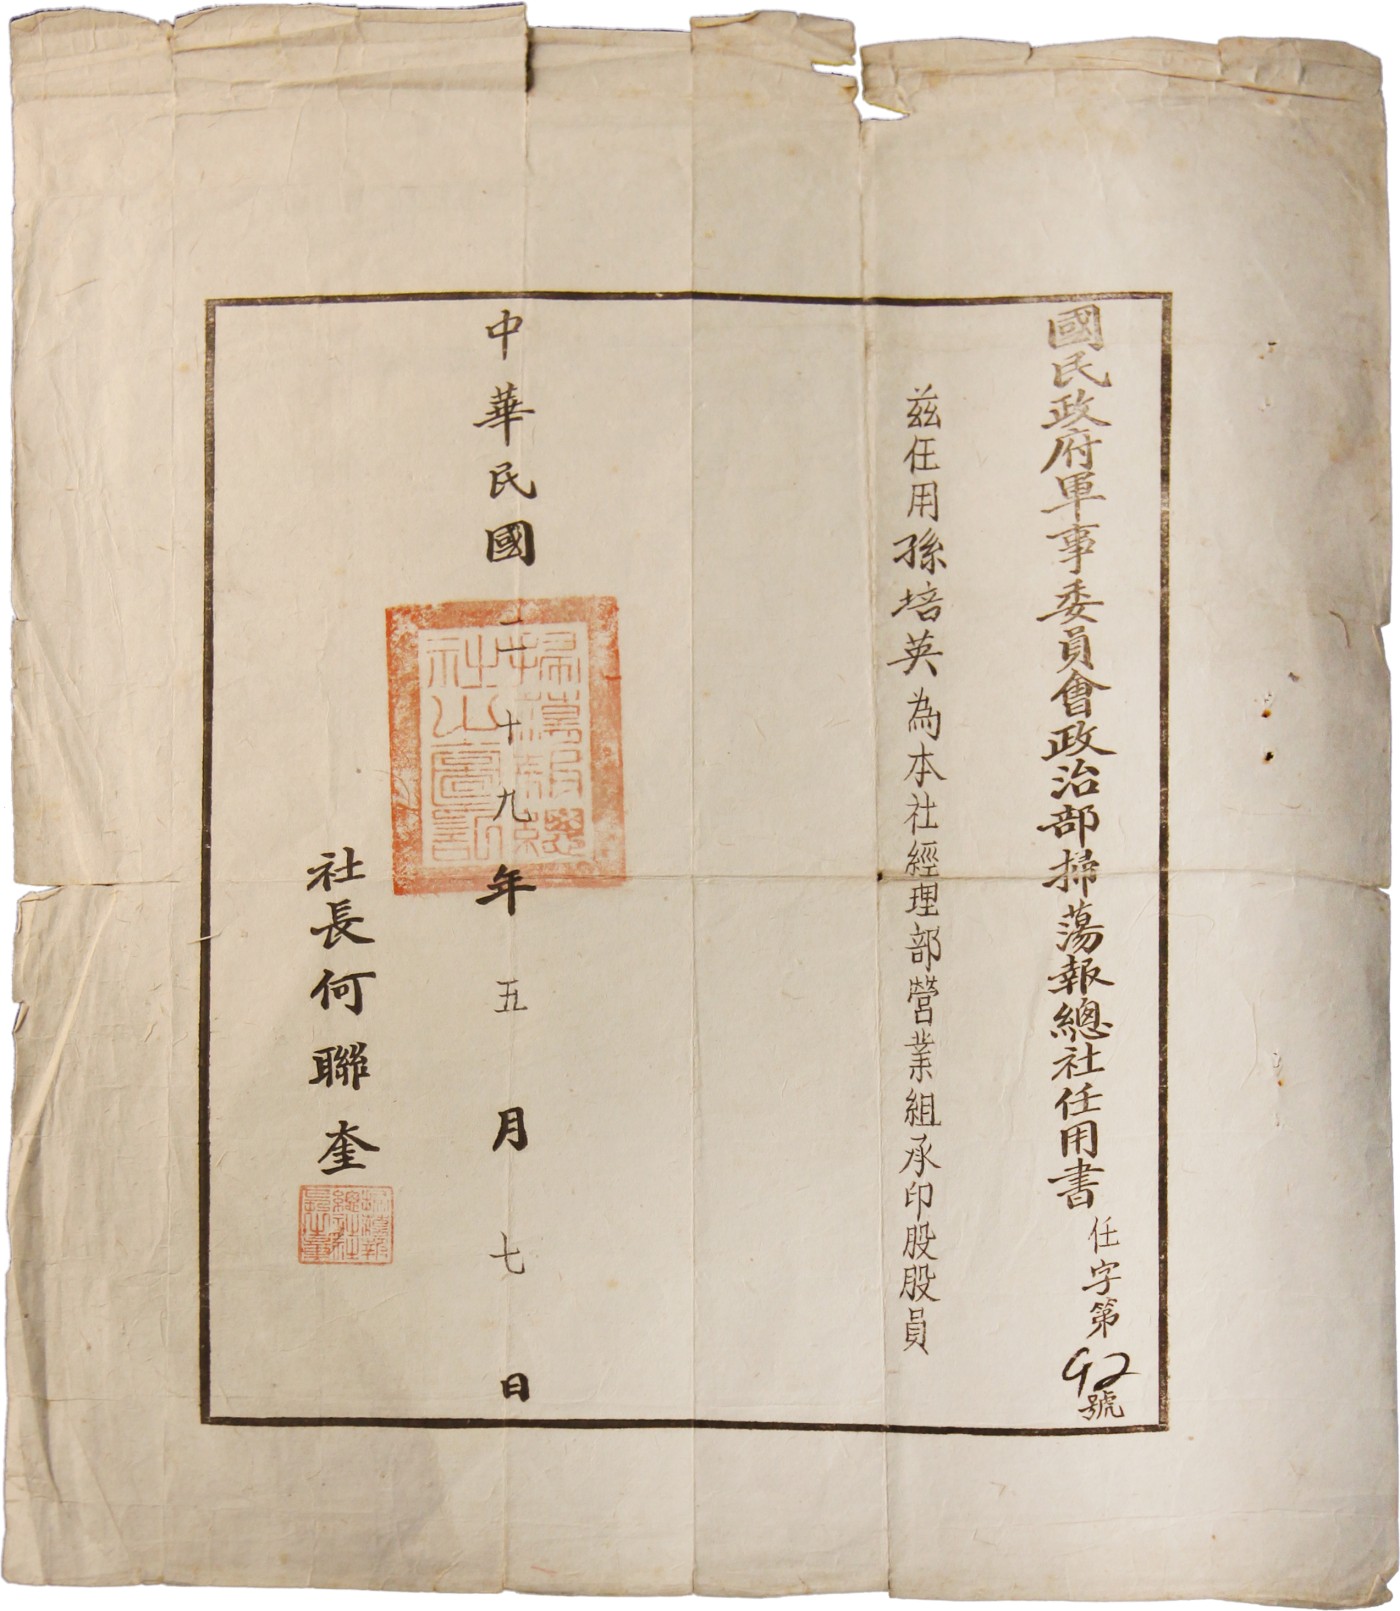 國民政府軍事委員會政治部掃蕩報總社任用書
任字第92號
茲任用孫培英為本社經理部營業組承印股股員
中華民國二十九年五月七日
掃蕩報總
社之圖記
社長何聯奎